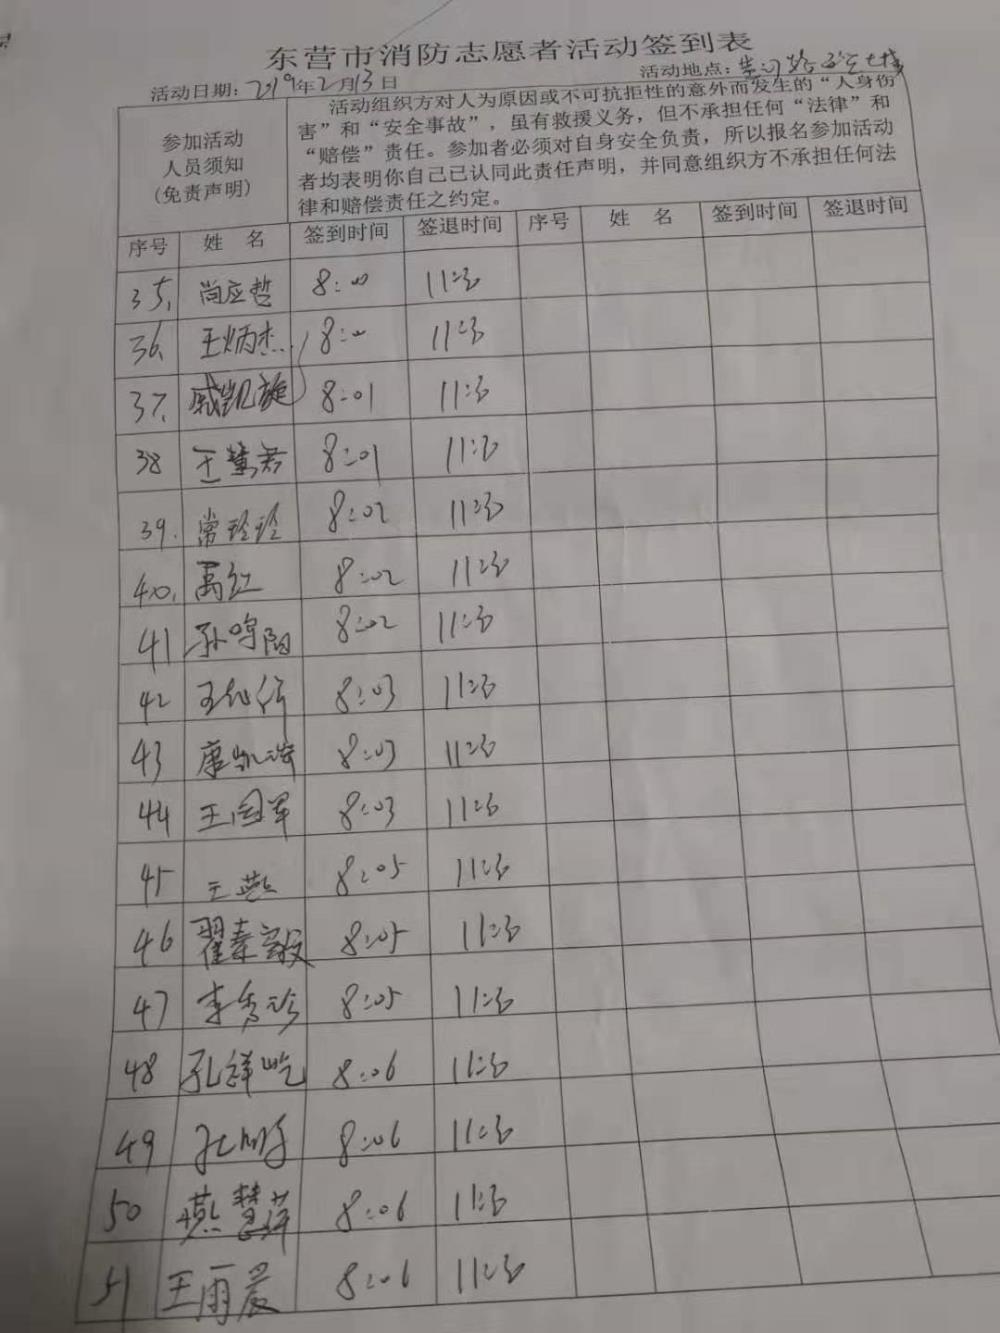 东营市消防志愿者活动签到表
活动日期：2019年2月13日 活动地点：
参加活动
人员须知
(免责声明)
活动组织方对人为原因或不可抗拒性的意外而发生的“人身伤
害”和“安全事故”，虽有救援义务，但不承担任何“法律”和
“赔偿”责任。参加者必须对自身安全负责，所以报名参加活动
者均表明你自己已认同此责任声明，并同意组织方不承担任何法
律和赔偿责任之约定。
序号 姓 名 签到时间 签退时间 序号 姓 名 签到时间 签退时间
35. 尚应哲 8:00
36. 王炳杰 8:00
37. 戚凯旋 8:01
38 王慧君 8:01
39. 常玲玲 8:02
40. 禹红 8:02
41 孙鸣阳 8:02
42 8:03
43 唐凯 8:03
44 王国军 8:03
45 王燕 8:05
46 翟秦毅 8:05
47 李秀珍 8:05
48 孔祥屹 8:06
49 8:06
50 燕慧萍 8:06
51 王雨晨 8:06